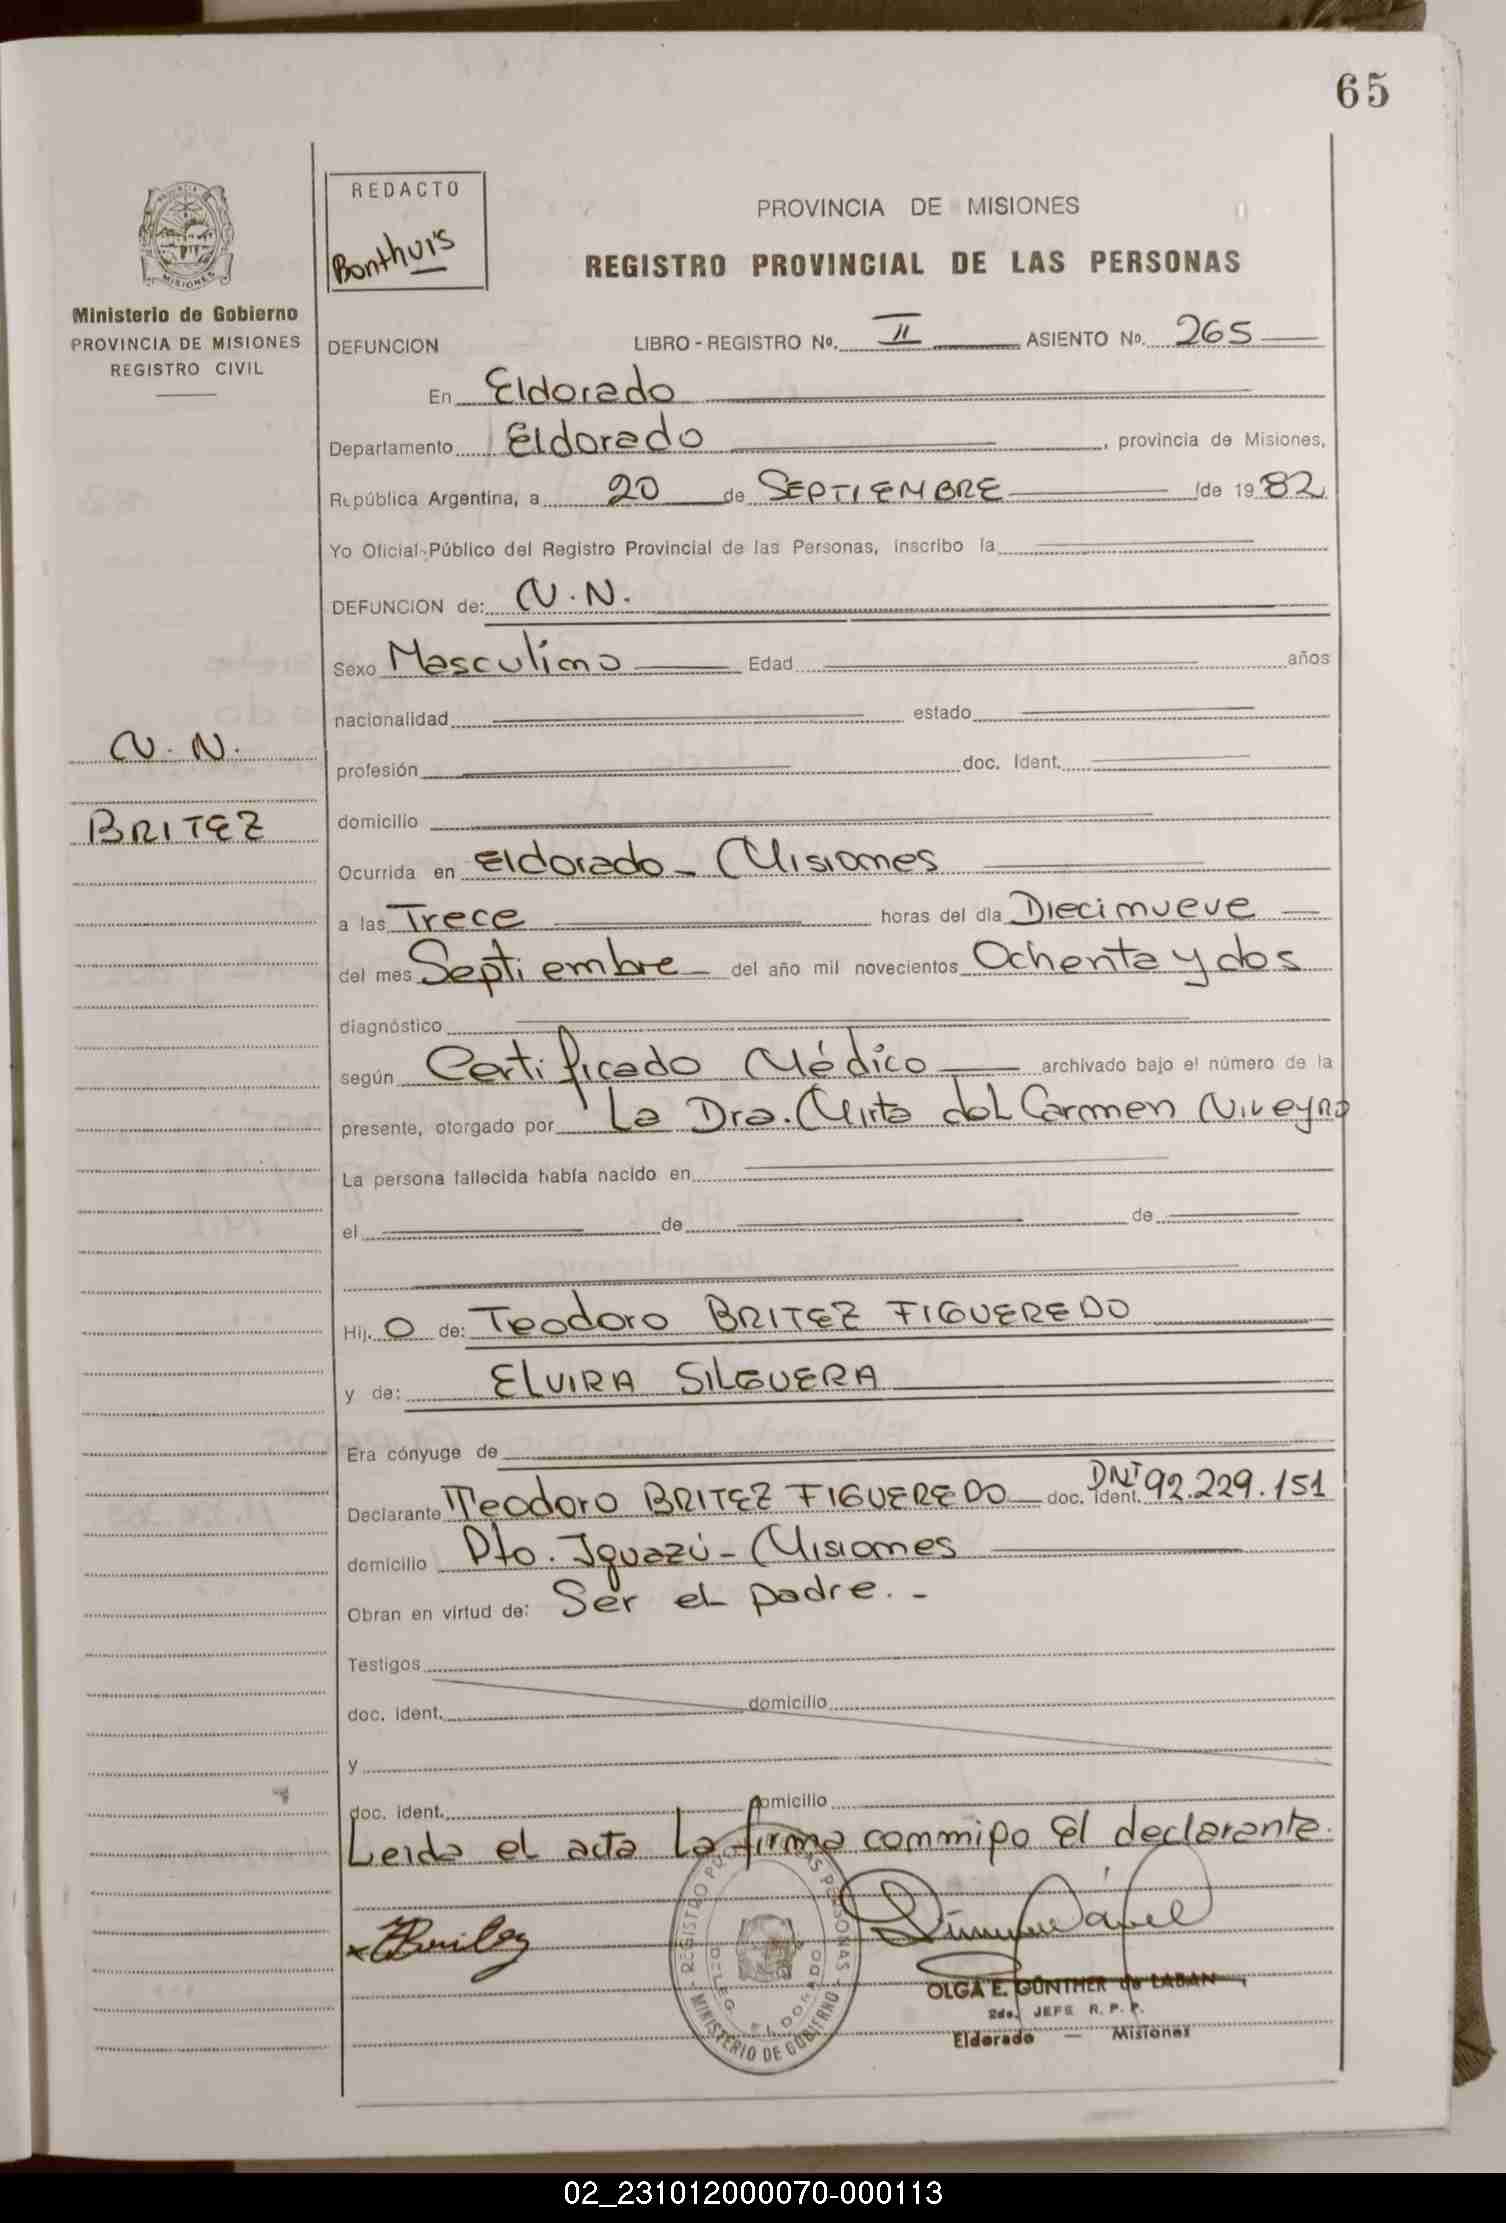 65
REDACTO
Bonthuis
PROVINCIA DE MISIONES
REGISTRO PROVINCIAL DE LAS PERSONAS
MISIONES
Ministerio de Gobierno
PROVINCIA DE MISIONES
REGISTRO CIVIL
DEFUNCION LIBRO - REGISTRO Nº. II ASIENTO Nº. 265
En Eldorado
Departamento Eldorado, provincia de Misiones,
República Argentina, a 20 de SEPTIEMBRE de 1982
Yo Oficial Público del Registro Provincial de las Personas, inscribo la
DEFUNCION de: N.N.
Sexo Masculino Edad años
nacionalidad estado
N. N.
profesión doc. Ident.
BRITEZ
domicilio
Ocurrida en Eldorado - Misiones
a las Trece horas del día Diecinueve
del mes Septiembre del año mil novecientos Ochenta y dos
diagnóstico
según Certificado Médico archivado bajo el número de la
presente, otorgado por La Dra. Mirta del Carmen
La persona fallecida había nacido en
el de de
Hij. o de: Teodoro BRITEZ FIGUEREDO
y de: ELVIRA SILGUERA
Era cónyuge de
Declarante Teodoro BRITEZ FIGUEREDO doc. ident. DNI 92.229.151
domicilio Pto. Iguazú - Misiones
Obran en virtud de: Ser el padre. -
Testigos
doc. ident. domicilio
y
doc. ident. domicilio
Leida el acta la firma conmigo el declarante.
REGISTRO PERSONAS
DELEG. ELDORADO
MINISTERIO DE GOBIERNO
OLGA E. GÜNTHER de LABAN
2do. JEFE R. P. P.
Eldorado — Misiones
02_231012000070-000113